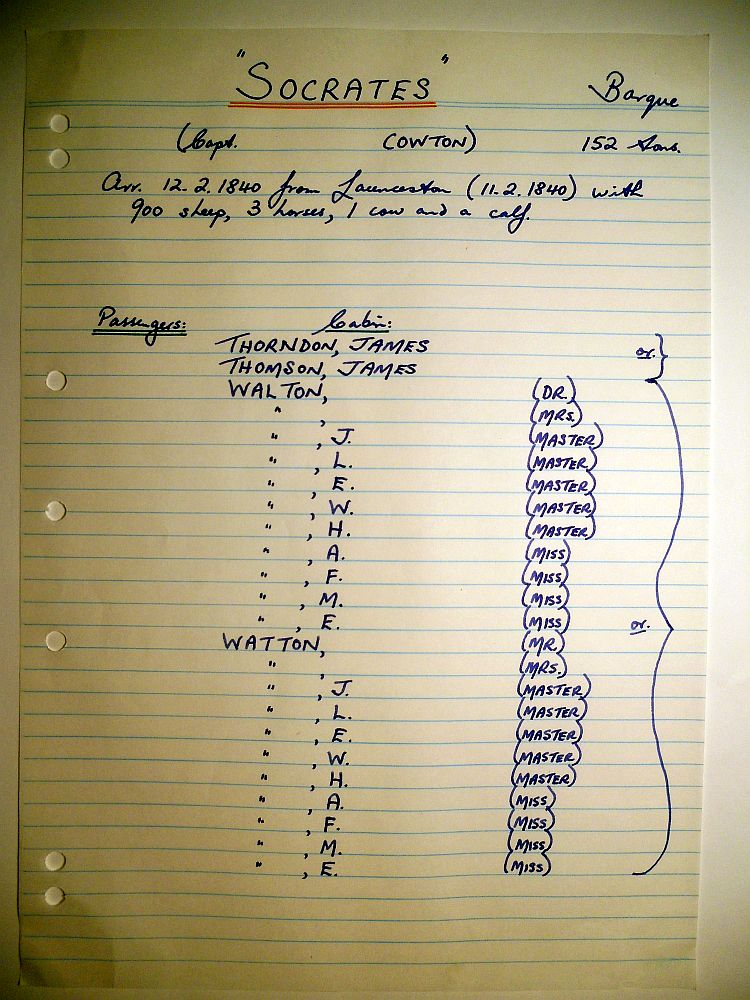 "SOCRATES" Barque
(Capt. COWTON) 152 tons.
Arr. 12.2.1840 from Launceston (11.2.1840) with
900 sheep, 3 horses, 1 cow and a calf.
Passengers: Cabin:
THORNDON, JAMES or.
THOMSON, JAMES
WALTON, (DR.)
" , (MRS.)
" , J. (MASTER)
" , L. (MASTER)
" , E. (MASTER)
" , W. (MASTER)
" , H. (MASTER)
" , A. (MISS)
" , F. (MISS)
" , M. (MISS)
" , E. (MISS) or.
WATTON, (MR.)
" , (MRS.)
" , J. (MASTER)
" , L. (MASTER)
" , E. (MASTER)
" , W. (MASTER)
" , H. (MASTER)
" , A. (MISS)
" , F. (MISS)
" , M. (MISS)
" , E. (MISS)